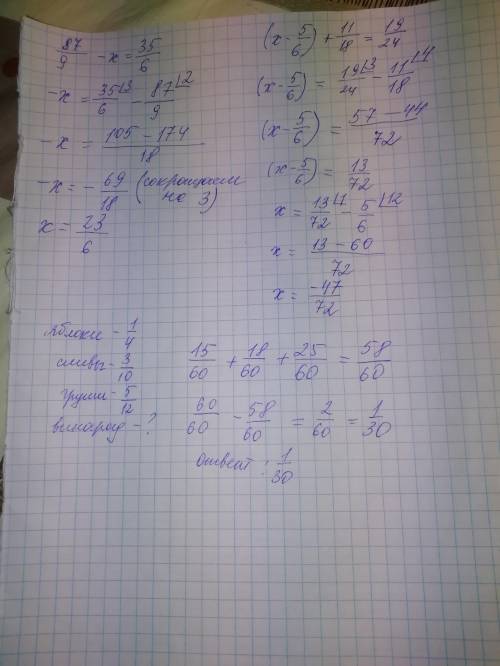 87/9 - x = 35/6
-x = 35/6 - 87/9
-x = (105 - 174)/18
-x = - 69/18 (сокращаем на 3)
x = 23/6
(x - 5/6) + 11/18 = 19/24
(x - 5/6) = 19/24 - 11/18
(x - 5/6) = (57 - 44)/72
(x - 5/6) = 13/72
x = 13/72 - 5/6
x = (13 - 60)/72
x = -47/72
яблоки - 1/4
сливы - 3/10
груши - 5/12
виноград - ?
15/60 + 18/60 + 25/60 = 58/60
60/60 - 58/60 = 2/60 = 1/30
Ответ: 1/30